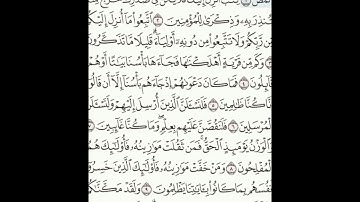 الٓمٓصٓ ١ كِتَٰبٌ أُنزِلَ إِلَيْكَ فَلَا يَكُن فِى صَدْرِكَ حَرَجٌ مِّنْهُ
لِتُنذِرَ بِهِۦ وَذِكْرَىٰ لِلْمُؤْمِنِينَ ٢ ٱتَّبِعُوا۟ مَآ أُنزِلَ إِلَيْكُم
مِّن رَّبِّكُمْ وَلَا تَتَّبِعُوا۟ مِن دُونِهِۦٓ أَوْلِيَآءَ قَلِيلًا مَّا تَذَكَّرُونَ
٣ وَكَم مِّن قَرْيَةٍ أَهْلَكْنَٰهَا فَجَآءَهَا بَأْسُنَا بَيَٰتًا أَوْ هُمْ
قَآئِلُونَ ٤ فَمَا كَانَ دَعْوَىٰهُمْ إِذْ جَآءَهُم بَأْسُنَآ إِلَّآ أَن قَالُوٓا۟
إِنَّا كُنَّا ظَٰلِمِينَ ٥ فَلَنَسْـَٔلَنَّ ٱلَّذِينَ أُرْسِلَ إِلَيْهِمْ وَلَنَسْـَٔلَنَّ
ٱلْمُرْسَلِينَ ٦ فَلَنَقُصَّنَّ عَلَيْهِم بِعِلْمٍ وَمَا كُنَّا غَآئِبِينَ ٧
وَٱلْوَزْنُ يَوْمَئِذٍ ٱلْحَقُّ فَمَن ثَقُلَتْ مَوَٰزِينُهُۥ فَأُو۟لَٰٓئِكَ هُمُ
ٱلْمُفْلِحُونَ ٨ وَمَنْ خَفَّتْ مَوَٰزِينُهُۥ فَأُو۟لَٰٓئِكَ ٱلَّذِينَ خَسِرُوٓا۟
أَنفُسَهُم بِمَا كَانُوا۟ بِـَٔايَٰتِنَا يَظْلِمُونَ ٩ وَلَقَدْ مَكَّنَّٰكُمْ